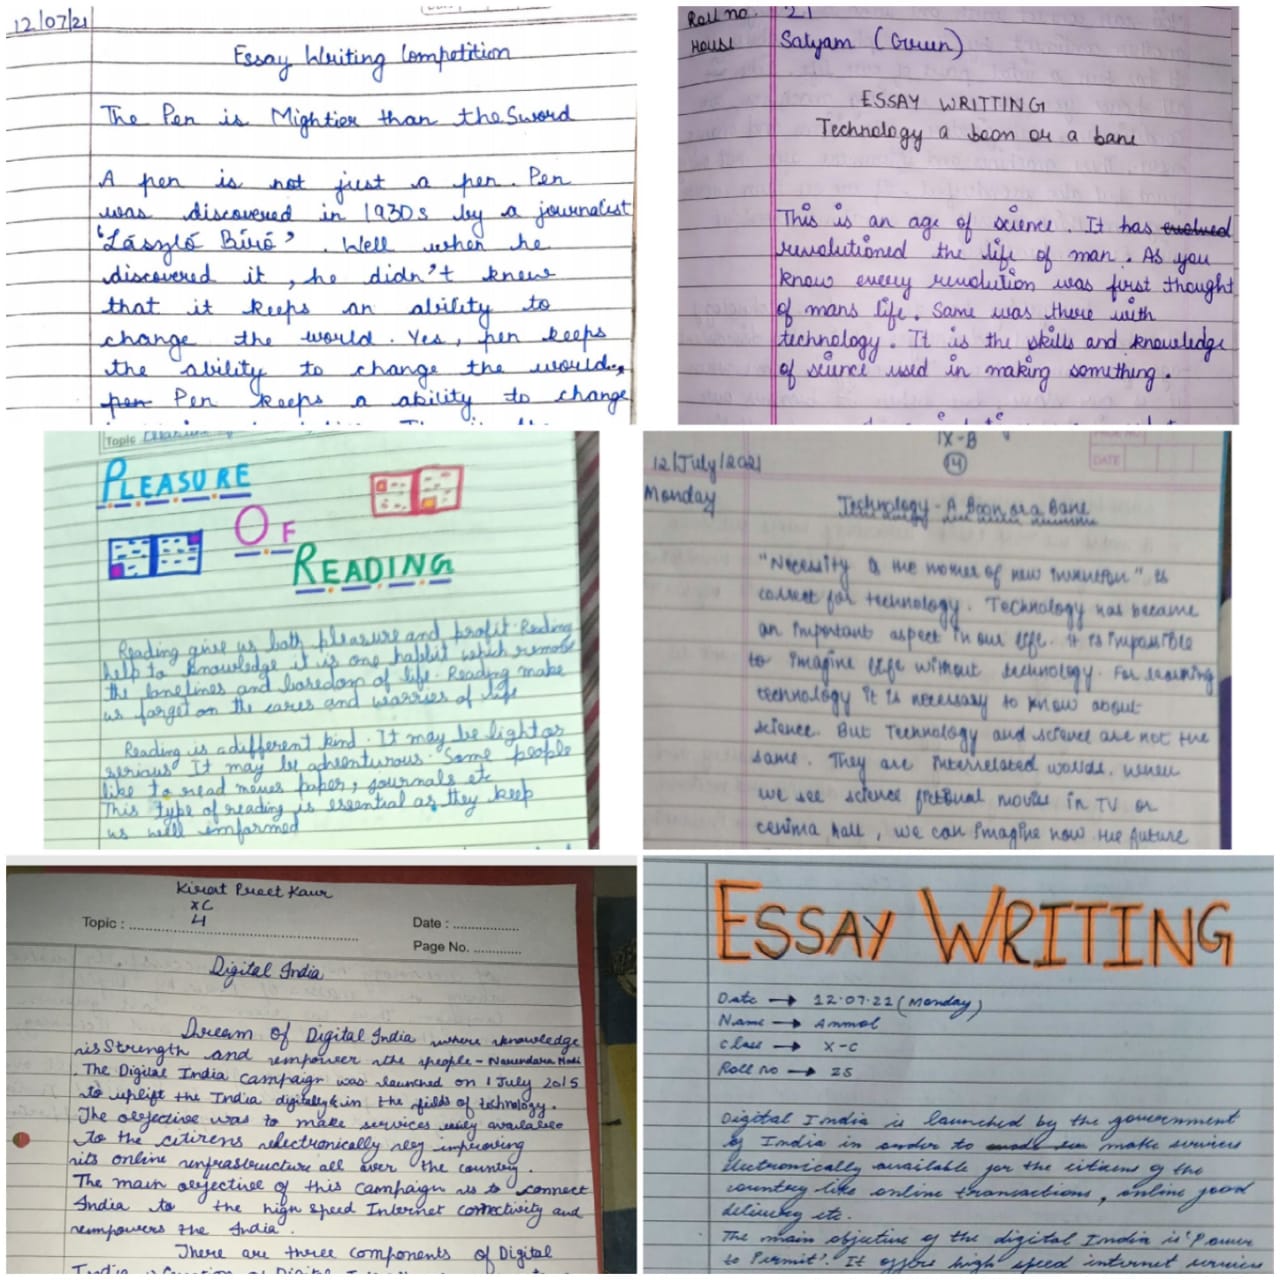 12/07/21
Essay Writing Competition
The Pen is Mightier than the Sword
A pen is not just a pen. Pen
was discovered in 1930s by a journalist
'László Bíró'. Well when he
discovered it, he didn't knew
that it keeps an ability to
change the world. Yes, pen keeps
the ability to change the world.
pen Pen keeps a ability to change
Roll no. 21
House Satyam (Green)
ESSAY WRITTING
Technology a boon or a bane
This is an age of science. It has evolved
revolutioned the life of man. As you
know every revolution was first thought
of mans life. Same was there with
technology. It is the skills and knowledge
of science used in making something.
Topic
PLEASURE
OF
READING
Reading give us both pleasure and profit. Reading
help to knowledge it is one habbit which remove
the lonelines and boredom of life. Reading make
us forget on the cares and worries of life
Reading is a different kind. It may be light or
serious It may be adventurous. Some people
like to read news paper, journals etc
This type of reading is essential as they keep
us well informed
IX-B
14
DATE
12/July/2021
Monday
Technology - A Boon or a Bane
"Necessity is the mother of new invention" is
correct for technology. Technology has became
an important aspect in our life. It is impossible
to imagine life without technology. For learning
technology it is necessary to know about
science. But Technology and science are not the
same. They are interrelated worlds. When
we see science fictional movies in TV or
cenima hall, we can imagine how the future
Kirat Preet Kaur
XC
Topic : 4
Date :
Page No.
Digital India
Dream of Digital India where knowledge
is Strength and empower the people - Narendara Modi
. The Digital India campaign was launched on 1 July 2015
to uplift the India digitally & in the fields of technology.
The objective was to make services easily available
to the citizens electronically by improving
its online infrastructure all over the country.
The main objective of this campaign is to connect
India to the high speed Internet connectivity and
empowers the India.
There are three components of Digital
ESSAY WRITING
Date → 12.07.21 (Monday)
Name → Anmol
Class → X-C
Roll no → 25
Digital India is launched by the government
of India in order to make services
electronically available for the citizens of the
country like online transactions, online food
delivery etc.
The main objective of the digital India is 'Power
to Permit'. It offers high speed internet services